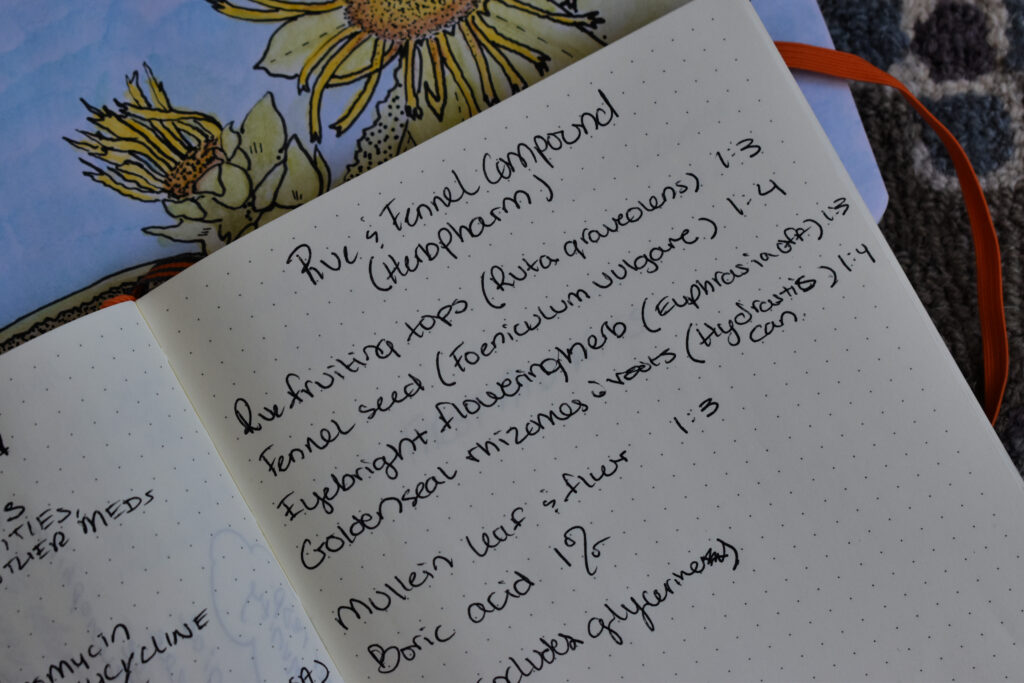 S
ITIES,
MEDS
omycin
YCLINE
Rue & Fennel Compound
(Herbpharm)
Rue fruiting tops (Ruta graveolens) 1:3
Fennel seed (Foeniculum vulgare) 1:4
Eyebright flowering herb (Euphrasia off.) 1:3
Goldenseal rhizomes & roots (Hydrastis can. ) 1:4
Mullein leaf & flwr 1:3
Boric acid 1%